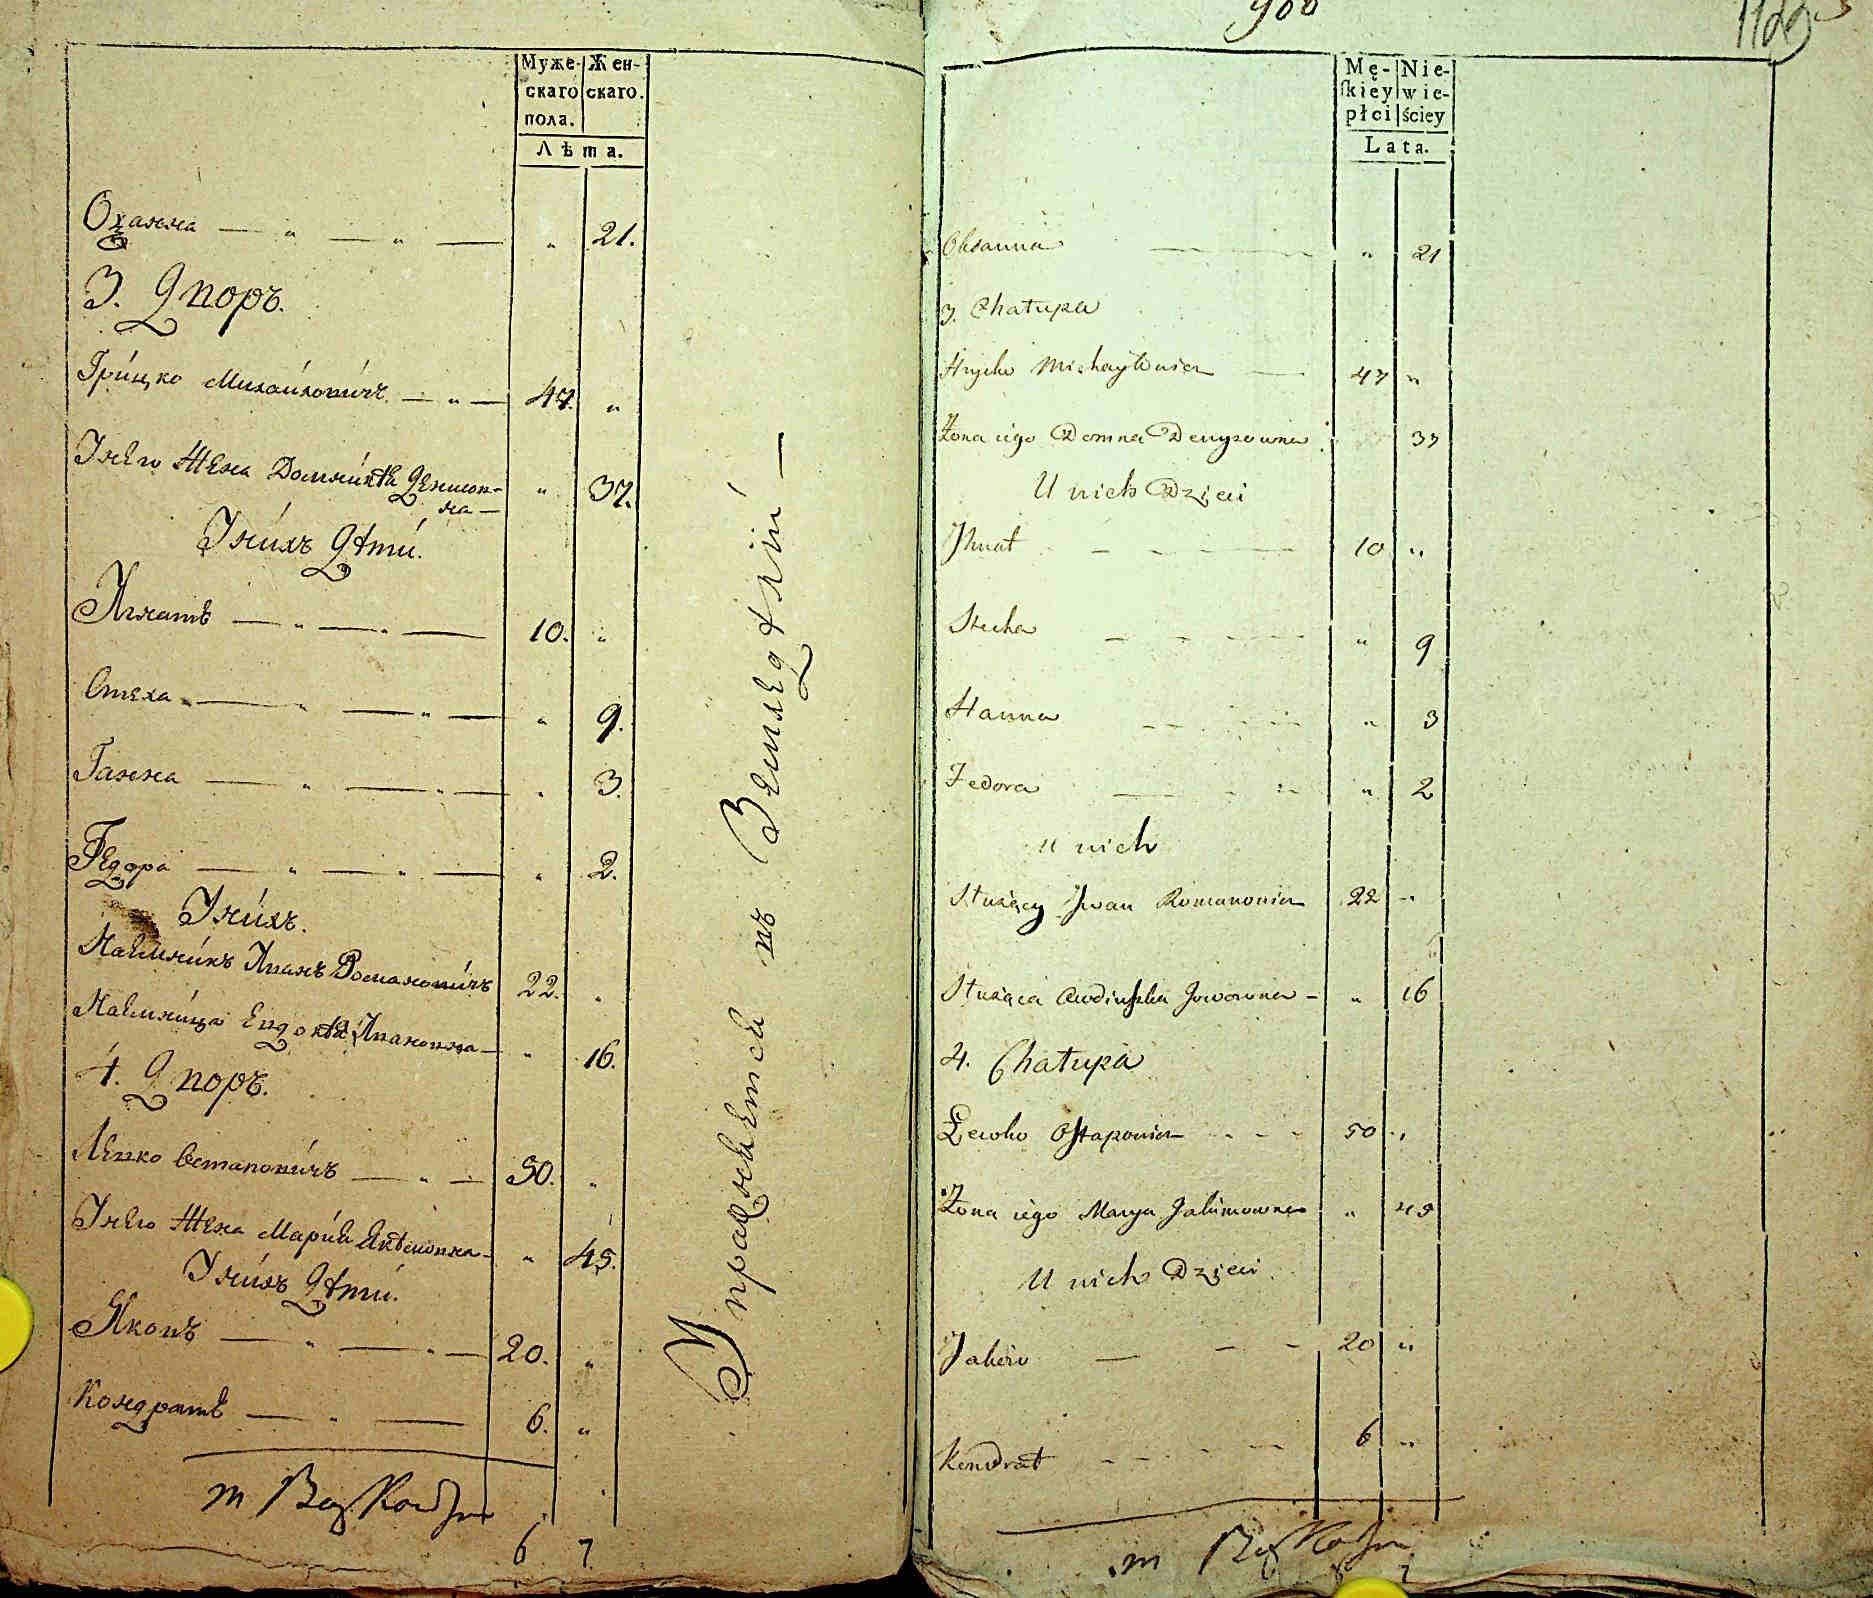 Мужескаго пола. Женскаго.
Лѣта.
Оханна — „ — „ — „ 21.
3. Дворъ.
Грицко Михайловичъ — „ — 47. „
У него Жена Домникїа Денисов-
на — „ 37.
У нихъ Дѣти.
Игнатъ — „ — „ — 10. „
Стеха — „ — „ — „ 9.
Ганна — „ — „ — „ 3.
Федора — „ — „ — „ 2.
У нихъ.
Наемникъ Иванъ Романовичъ 22. „
Наемница Евдокїа Ивановна — „ 16.
4. Дворъ.
Левко Остаповичъ — „ — 50. „
У него Жена Марїя Якимовна — „ 45.
У нихъ Дѣти.
Яковъ — „ — „ — 20. „
Кондратъ — „ — 6. „
6 7
Упражняется въ Земледѣлїи —
900
Męskiey płci Niewieściey
Lata.
Oksanna „ 21
3. Chałupa
Hryćko Michayłowicz — 47 „
Żona iego Domna Denysowna 37
U nich Dzieci
Ihnat 10 „
Stecha „ 9
Hanna „ 3
Fedora „ 2
U nich
Służący Jwan Romanowicz 22 „
Służąca Awdiuszka Jwanowna — „ 16
4. Chałupa
Lewko Ostapowicz 50 „
Żona iego Marya Jakimowna „ 45
U nich Dzieci
Jakow 20 „
Kondrat 6 „
7